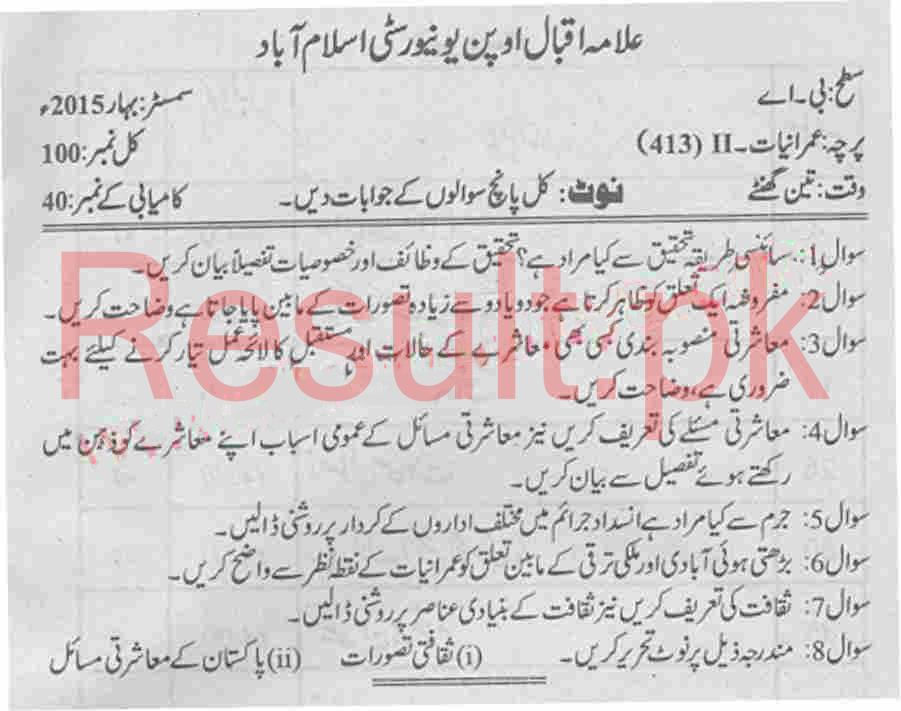 علامہ اقبال اوپن یونیورسٹی اسلام آباد
سطح: بی۔اے
سمسٹر: بہار 2015ء
پرچہ: عمرانیات۔II (413)
کل نمبر: 100
وقت: تین گھنٹے نوٹ: کل پانچ سوالوں کے جوابات دیں۔ کامیابی کے نمبر: 40
سوال 1: سائنسی طریقہ تحقیق سے کیا مراد ہے؟ تحقیق کے وظائف اور خصوصیات تفصیلاً بیان کریں۔
سوال 2: مفروضہ ایک تعلق کو ظاہر کرتا ہے جو دو یا دو سے زیادہ تصورات کے مابین پایا جاتا ہے وضاحت کریں۔
سوال 3: معاشرتی منصوبہ بندی کسی بھی معاشرے کے حالات اور مستقبل کا لائحہ عمل تیار کرنے کیلئے بہت
ضروری ہے، وضاحت کریں۔
سوال 4: معاشرتی مسئلے کی تعریف کریں نیز معاشرتی مسائل کے عمومی اسباب اپنے معاشرے کو ذہن میں
رکھتے ہوئے تفصیل سے بیان کریں۔
سوال 5: جرم سے کیا مراد ہے انسداد جرائم میں مختلف اداروں کے کردار پر روشنی ڈالیں۔
سوال 6: بڑھتی ہوئی آبادی اور ملکی ترقی کے مابین تعلق کو عمرانیات کے نقطہ نظر سے واضح کریں۔
سوال 7: ثقافت کی تعریف کریں نیز ثقافت کے بنیادی عناصر پر روشنی ڈالیں۔
سوال 8: مندرجہ ذیل پر نوٹ تحریر کریں۔ (i) ثقافتی تصورات (ii) پاکستان کے معاشرتی مسائل
Result pk